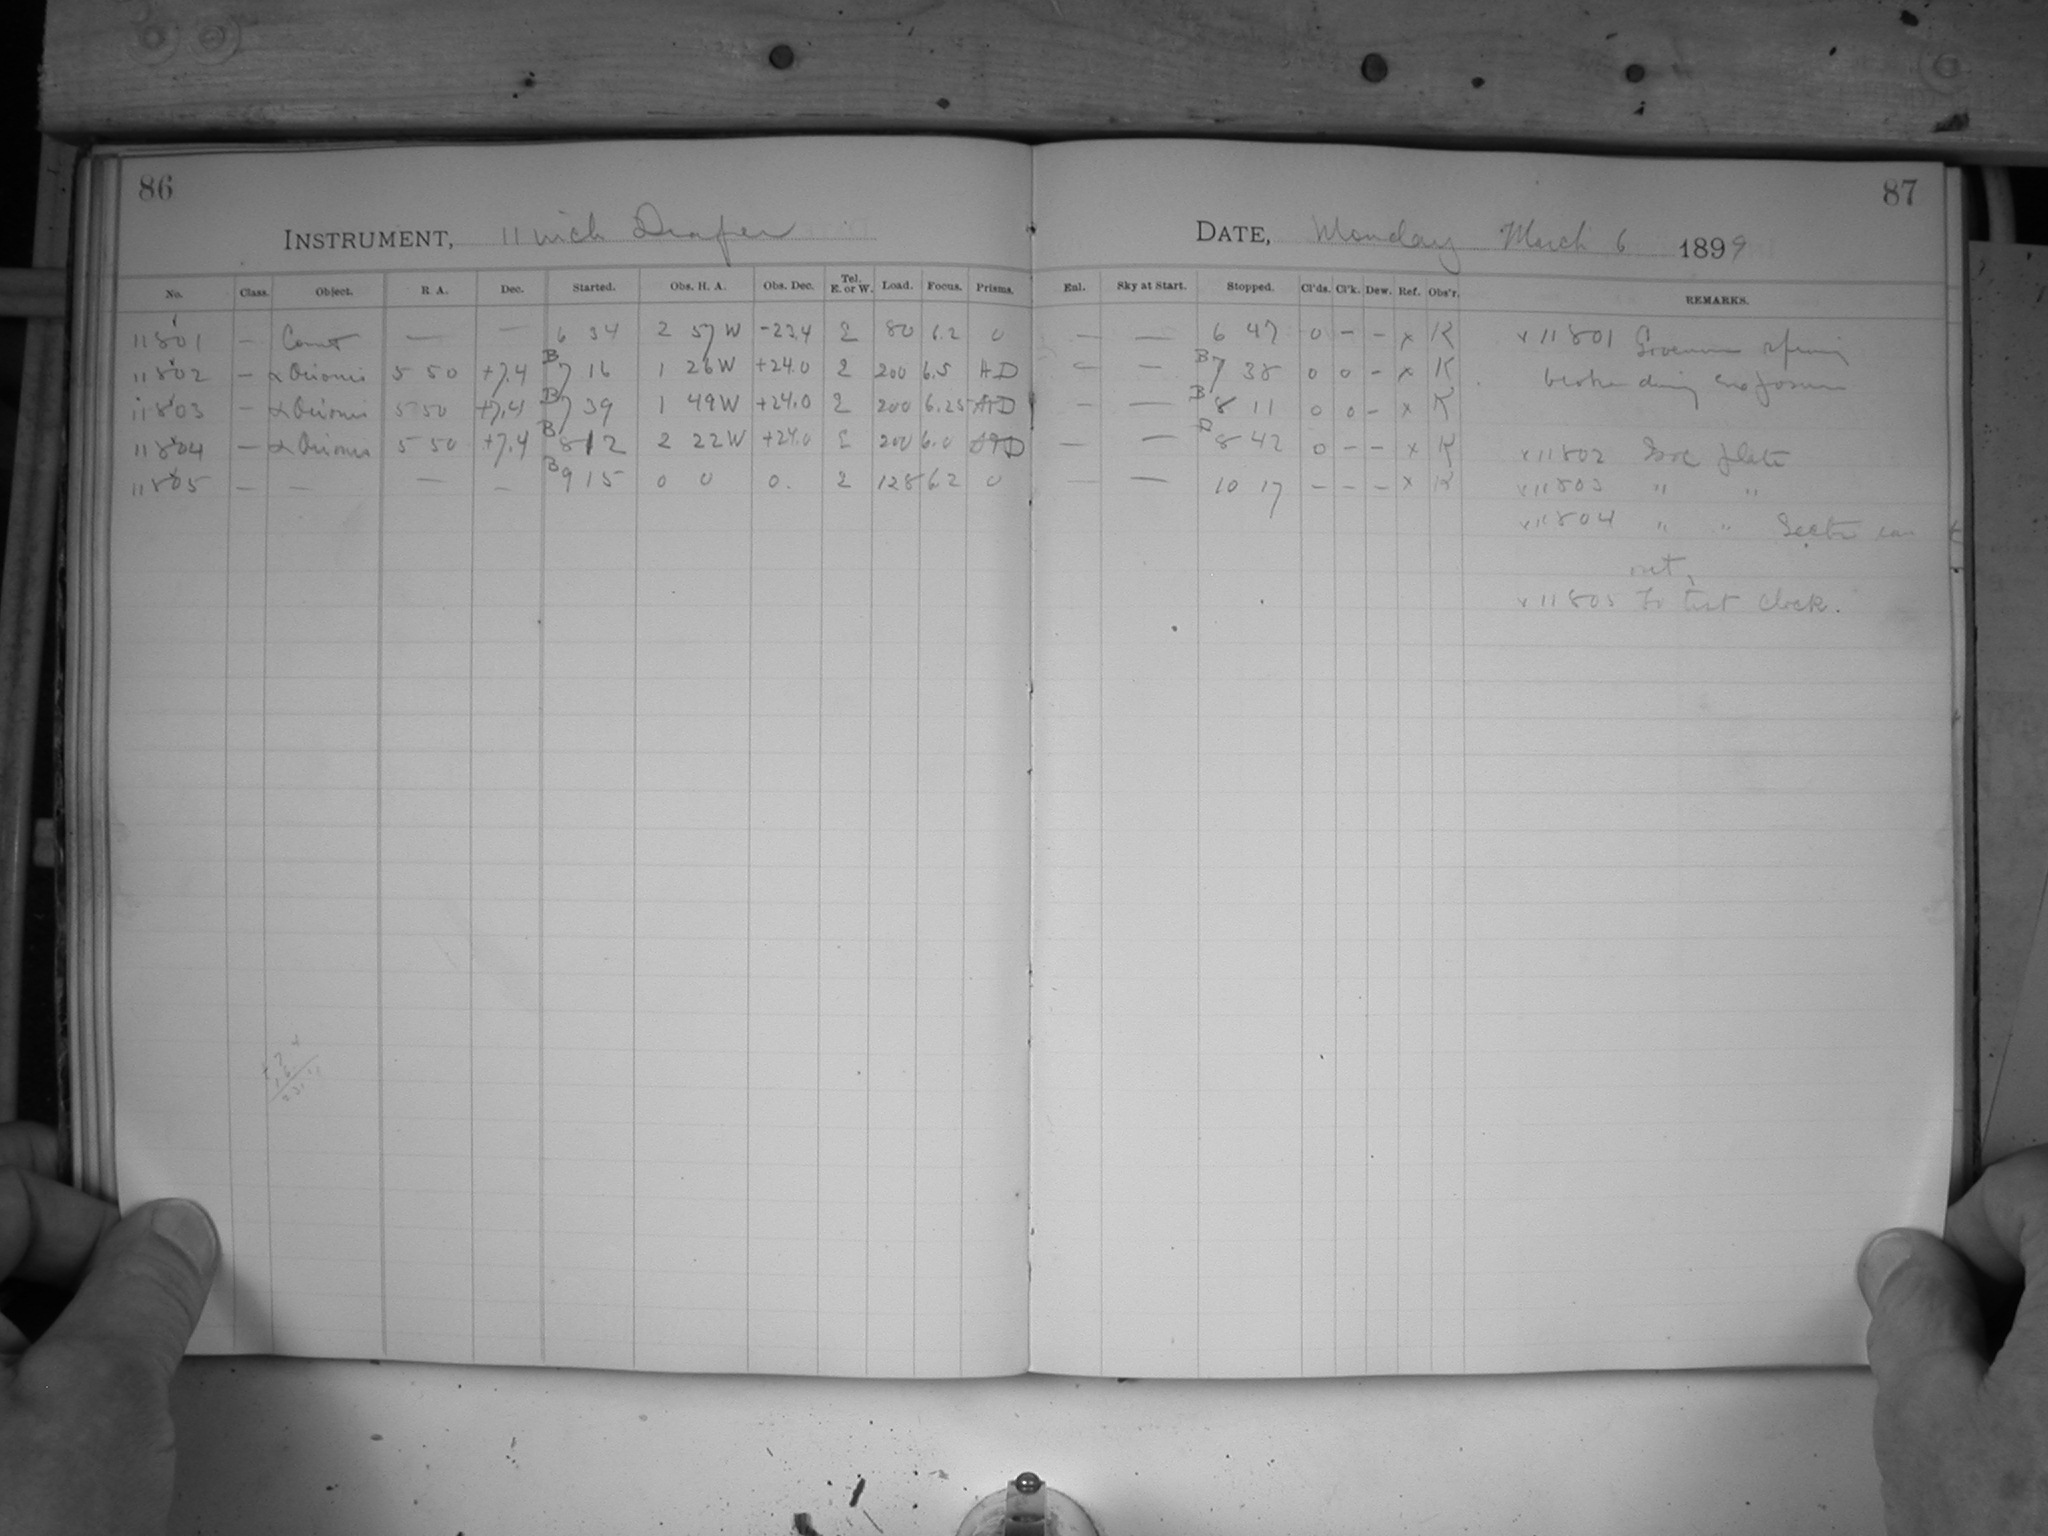 86
INSTRUMENT, 11 inch Draper
No. Class. Object. R. A. Dec. Started. Obs. H. A. Obs. Dec. Tel. E. or W. Load. Focus. Prisms.
11801 — Comet — — 6 34 2 57 W -23.4 E 80 6.2 0
11802 — α Orionis 5 50 +7.4 B 7 16 1 26 W +24.0 E 200 6.5 AD
11803 — α Orionis 5 50 +7.4 B 7 39 1 49 W +24.0 E 200 6.25 AD
11804 — α Orionis 5 50 +7.4 B 8 12 2 22 W +24.0 E 200 6.0 AD
11805 — — — — B 9 15 0 0 0. E 128 6.2 0
87
DATE, Monday March 6 1899
Enl. Sky at Start. Stopped. Cl'ds. Cl'k. Dew. Ref. Obs'r. REMARKS.
— — 6 47 0 - - x K
— — B 7 38 0 0 - x K
— — B 8 11 0 0 - x K
— — 8 42 0 - - x K
— — 10 17 - - - x K
v 11801 Governor spring
broke during exposure
v 11802 plate
v 11803 " "
v 11804 " " Sector ran
out.
v 11805 To test clock.